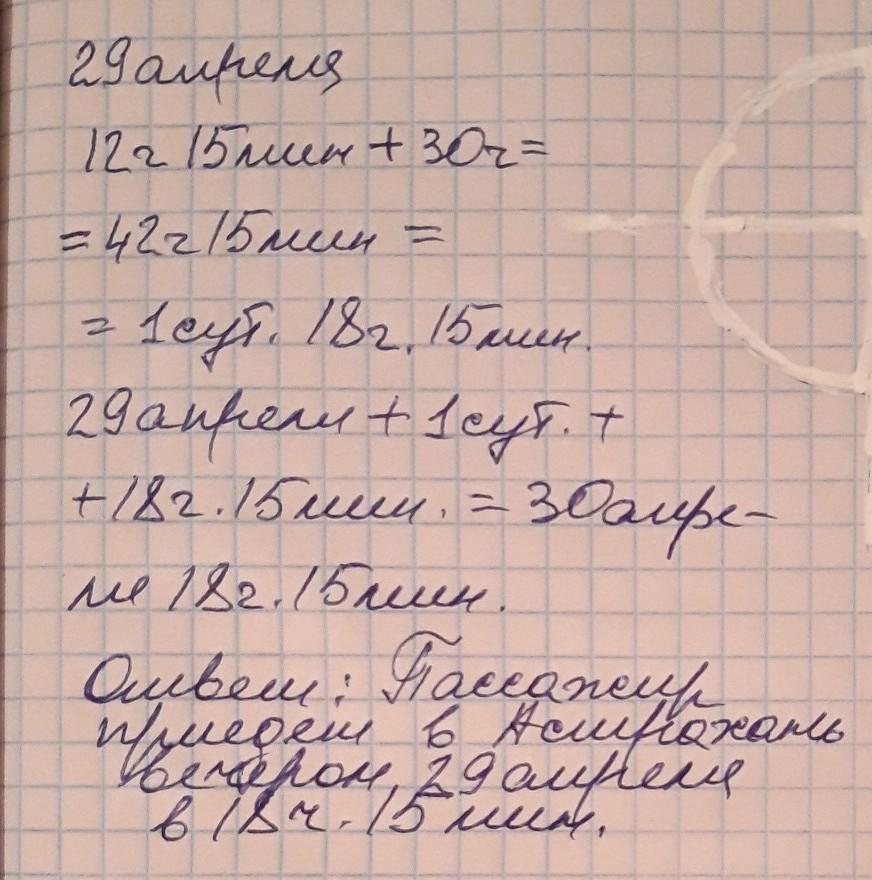 29 апреля
12ч 15мин + 30ч =
= 42ч 15мин =
= 1 сут. 18ч. 15мин.
29 апреля + 1 сут. +
+ 18ч. 15мин. = 30 апре-
ля 18ч. 15мин.
Ответ: Пассажир
приедет в Астрахань
вечером 29 апреля
в 18ч. 15 мин.